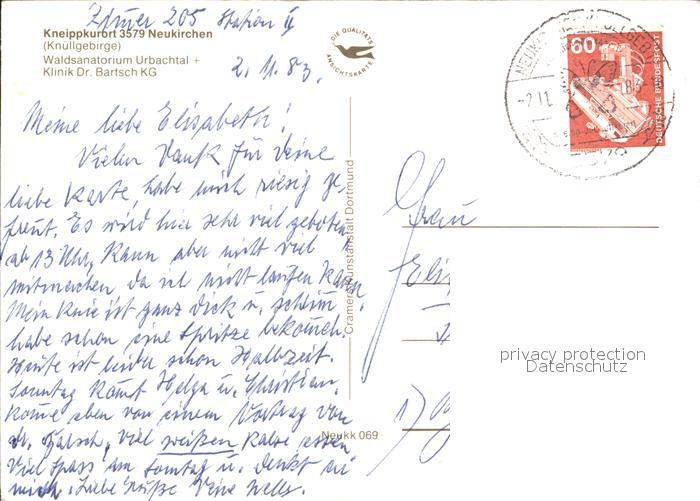 Zimmer 205 Station II
Kneippkurort 3579 Neukirchen
(Knüllgebirge)
Waldsanatorium Urbachtal +
Klinik Dr. Bartsch KG
2.11.83.
Meine liebe Elisabeth!
Vielen Dank für Deine
liebe Karte, habe mich riesig ge-
freut. Es wird hier sehr viel geboten
ab 13 Uhr, kann aber nicht viel
mitmachen da ich nicht laufen kann.
Mein Knie ist ganz dick u. schlimm
habe schon eine Spritze bekommen.
Heute ist leider schon Halbzeit.
Sonntag kommt Helga u. Christian.
Komme eben von einem Vortrag von
dr. viel weißen essen
Viel Spass am Sonntag u. denkt an
mich. Liebe Grüße Deine
DIE QUALITÄTS
ANSICHTSKARTE
Cramers Kunstanstalt Dortmund
Neukk 069
60
DEUTSCHE BUNDESPOST
Frau
privacy protection
Datenschutz